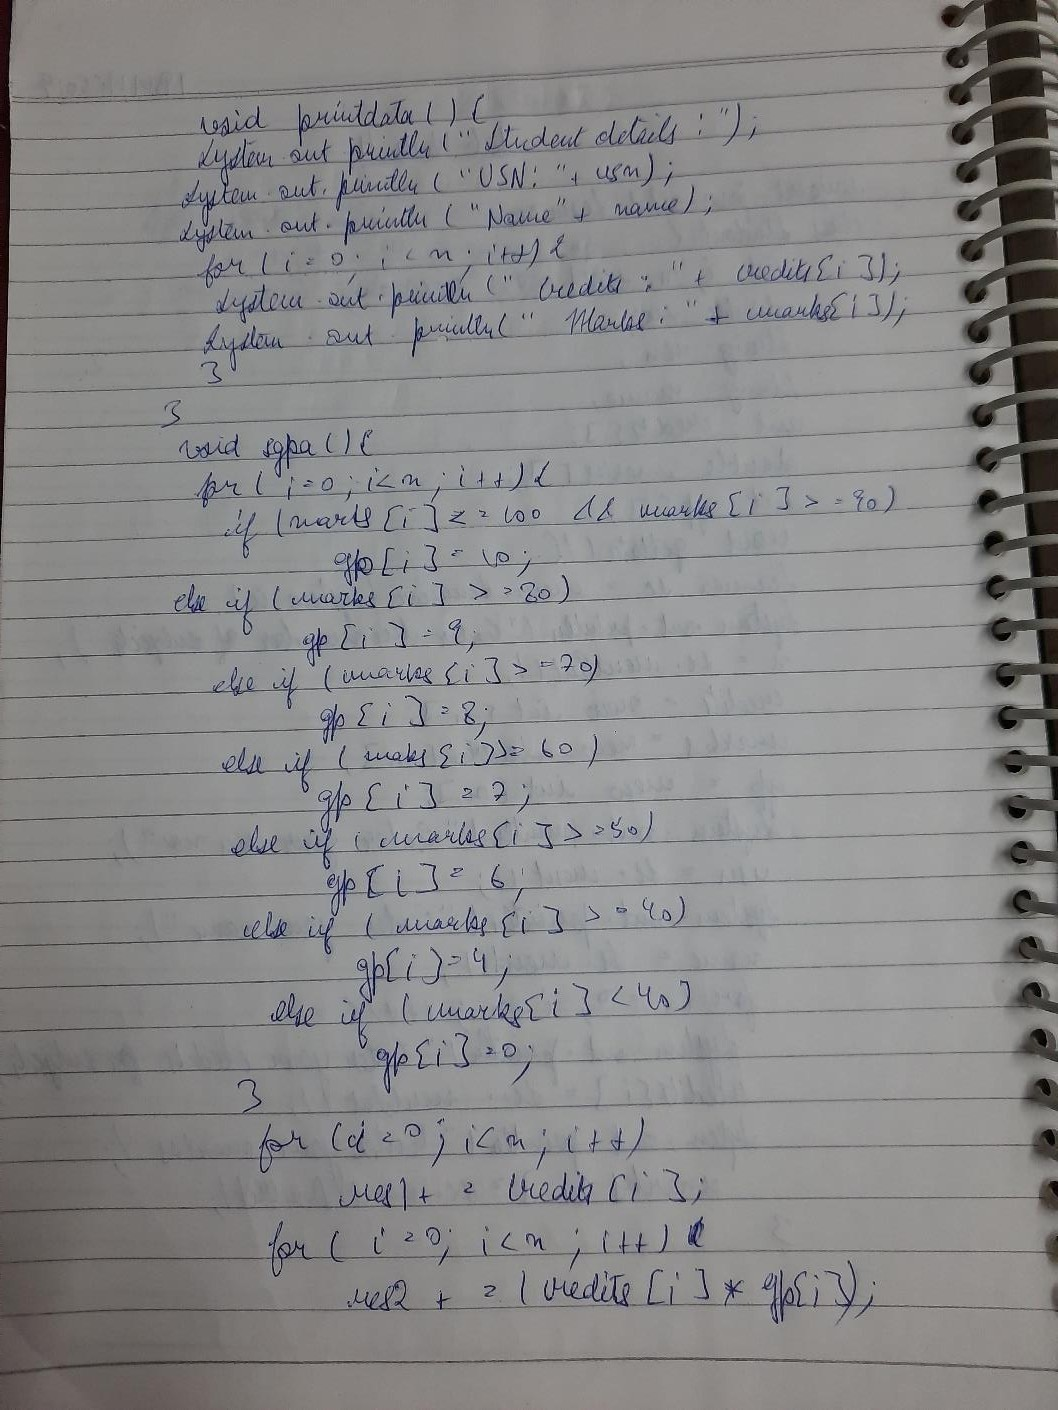 void printdata () {
System.out.println ("Student details : ");
System.out.println ("USN: " + usn);
System.out.println ("Name" + name);
for (i = 0; i < n; i++) {
System.out.println (" Credits : " + credits[i]);
System.out.println (" Marks : " + marks[i]);
}
}
void sgpa () {
for ( i=0; i<n; i++) {
if (marks [i] <= 100 && marks [i] >= 90)
gp [i] = 10;
else if (marks [i] >= 80)
gp [i] = 9;
else if (marks [i] >= 70)
gp [i] = 8;
else if (maks [i] >= 60)
gp [i] = 7;
else if (marks [i] >= 50)
gp [i] = 6;
else if (marks [i] >= 40)
gp[i] = 4;
else if (marks[i] < 40)
gp[i] = 0;
}
for (i = 0; i<n; i++)
res1 + = credits [i];
for ( i = 0; i<n; i++) {
res2 + = (credits [i] * gp[i]);